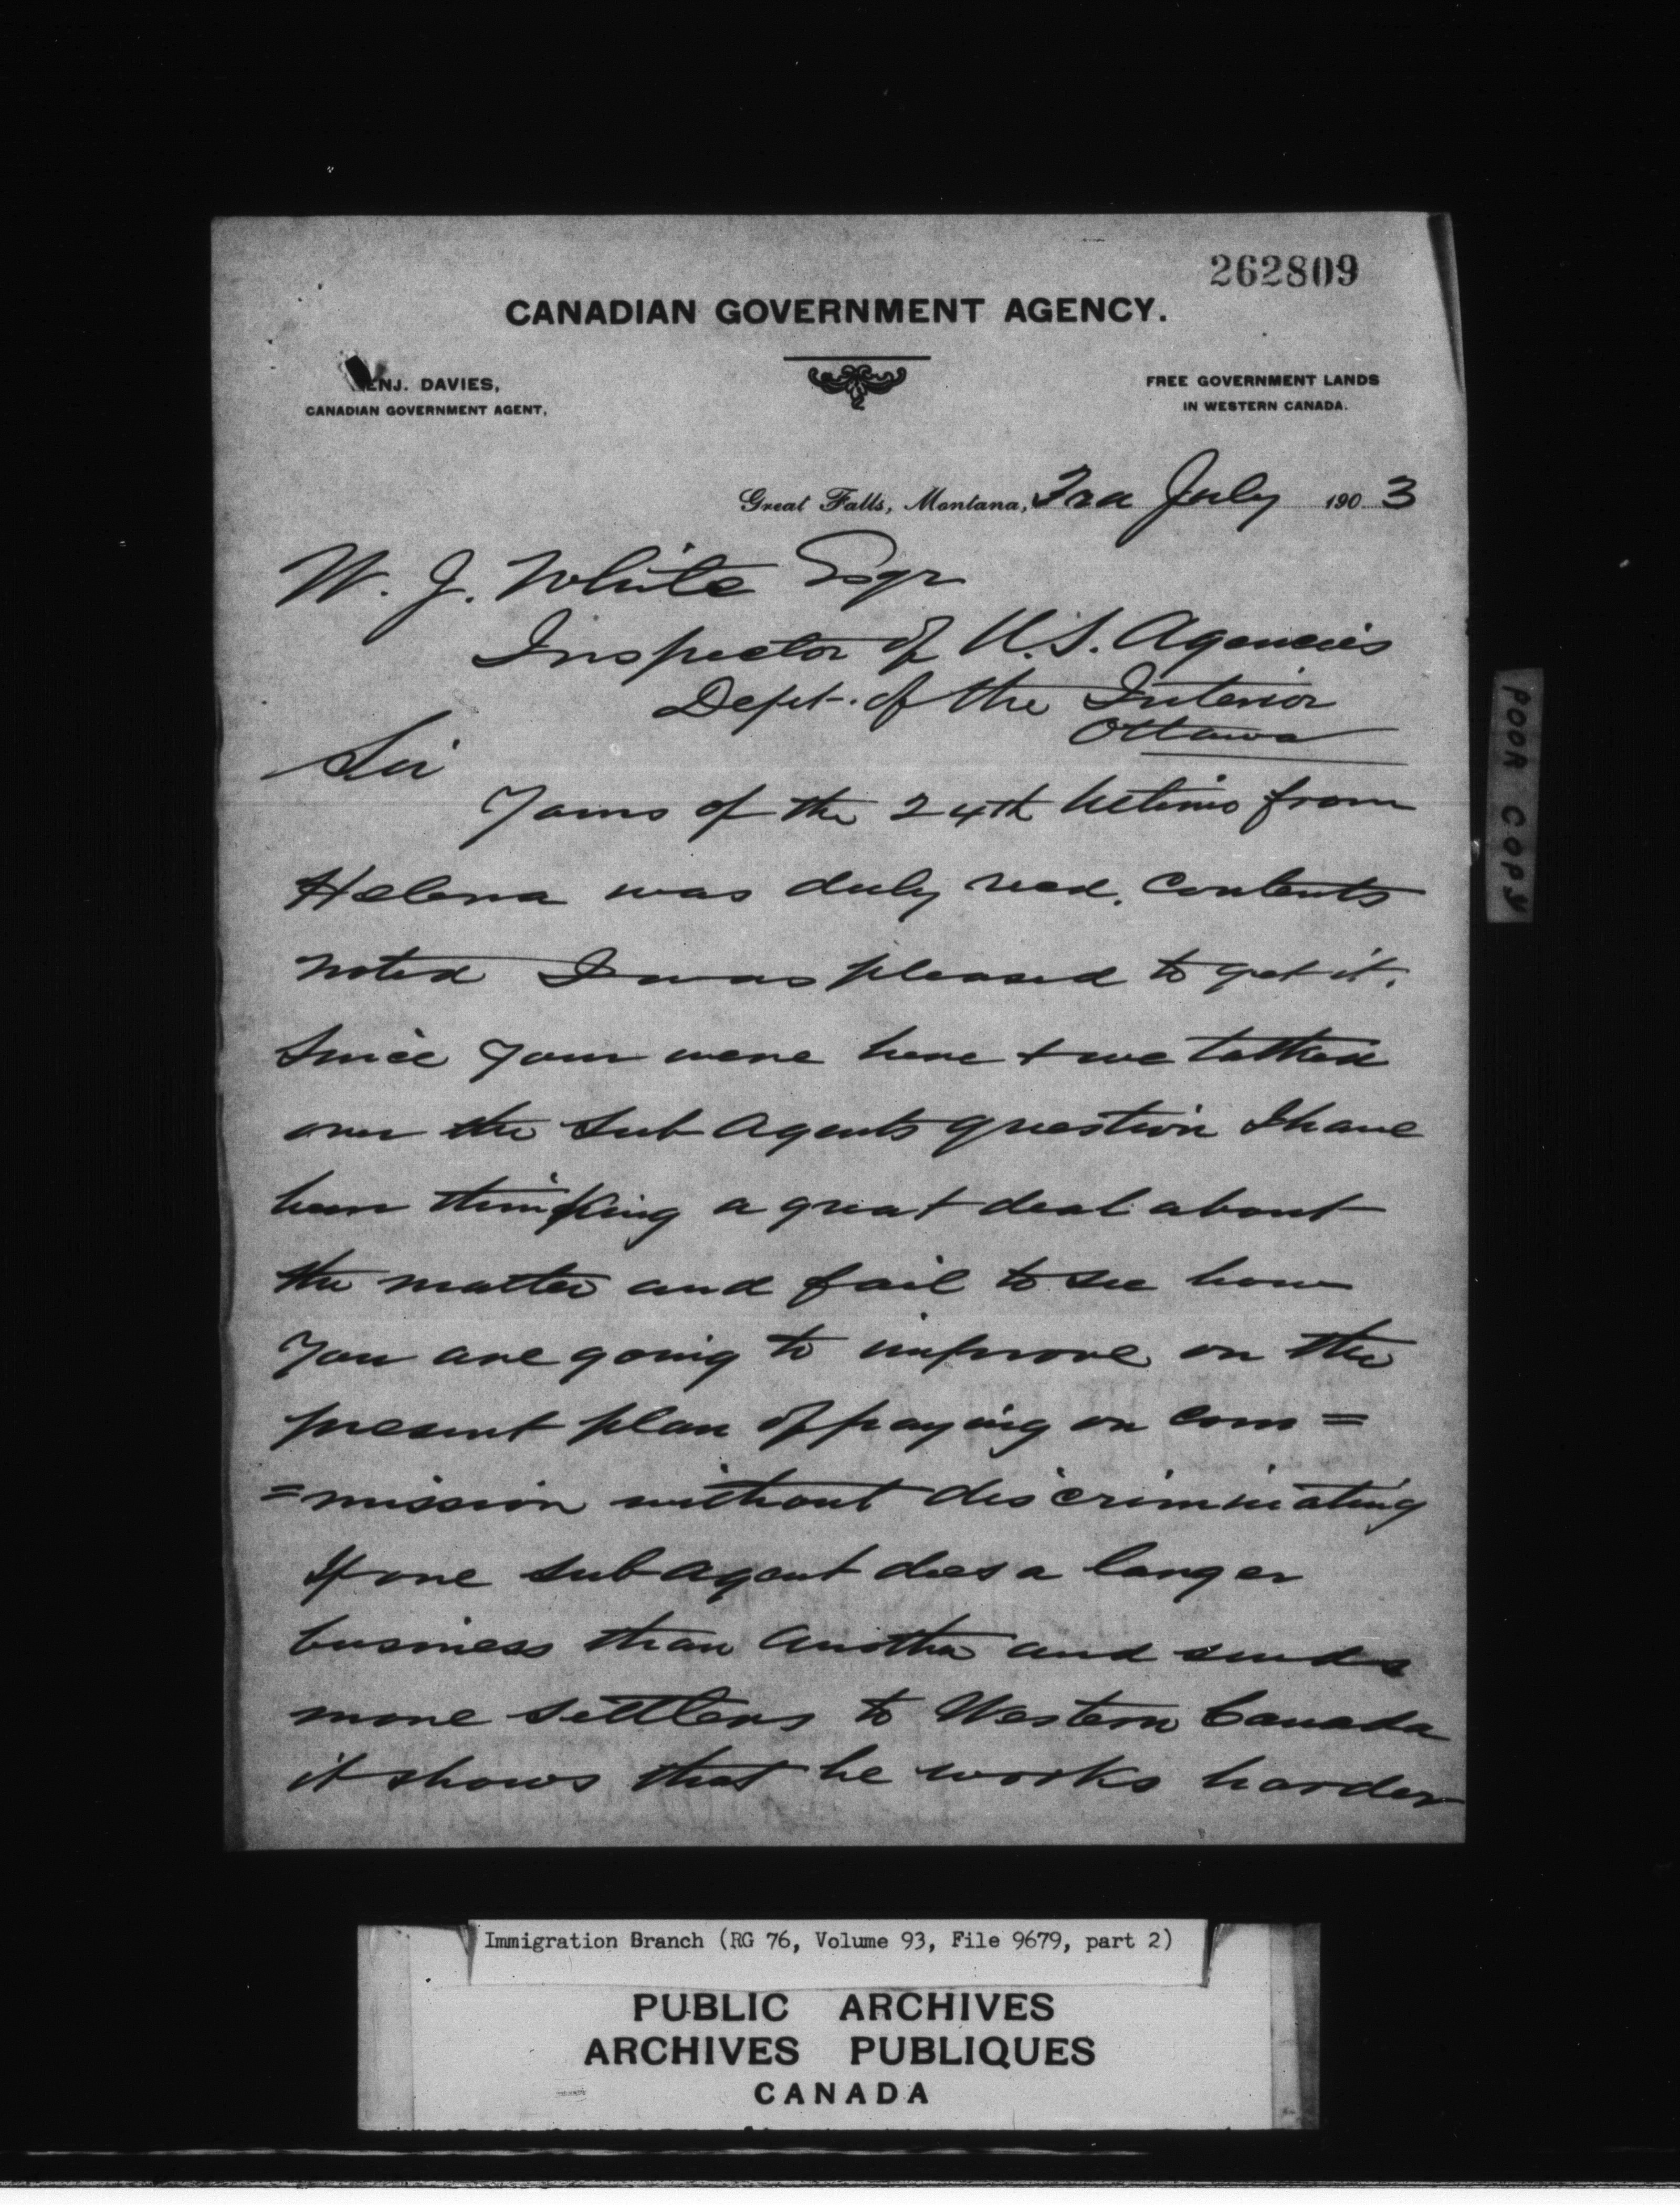 262809
CANADIAN GOVERNMENT AGENCY.
ENJ. DAVIES,
CANADIAN GOVERNMENT AGENT,
FREE GOVERNMENT LANDS
IN WESTERN CANADA.
Great Falls, Montana, 3rd July 1903
W. J. White Esqr
Inspector of U.S. Agencies
Dept. of the Interior
Ottawa
Sir
Yours of the 24th Ultimo from
Helena was duly recd. Contents
noted I was pleased to get it.
Since your were here + we talked
over the Sub Agents question I have
been thinking a great deal about
the matter and fail to see how
you are going to improve on the
present plan of paying on com=
=mission without discriminating
If one sub agent does a larger
business than another and sends
more settlers to Western Canada
it shows that he works harder
POOR COPY
Immigration Branch (RG 76, Volume 93, File 9679, part 2)
PUBLIC ARCHIVES
ARCHIVES PUBLIQUES
CANADA